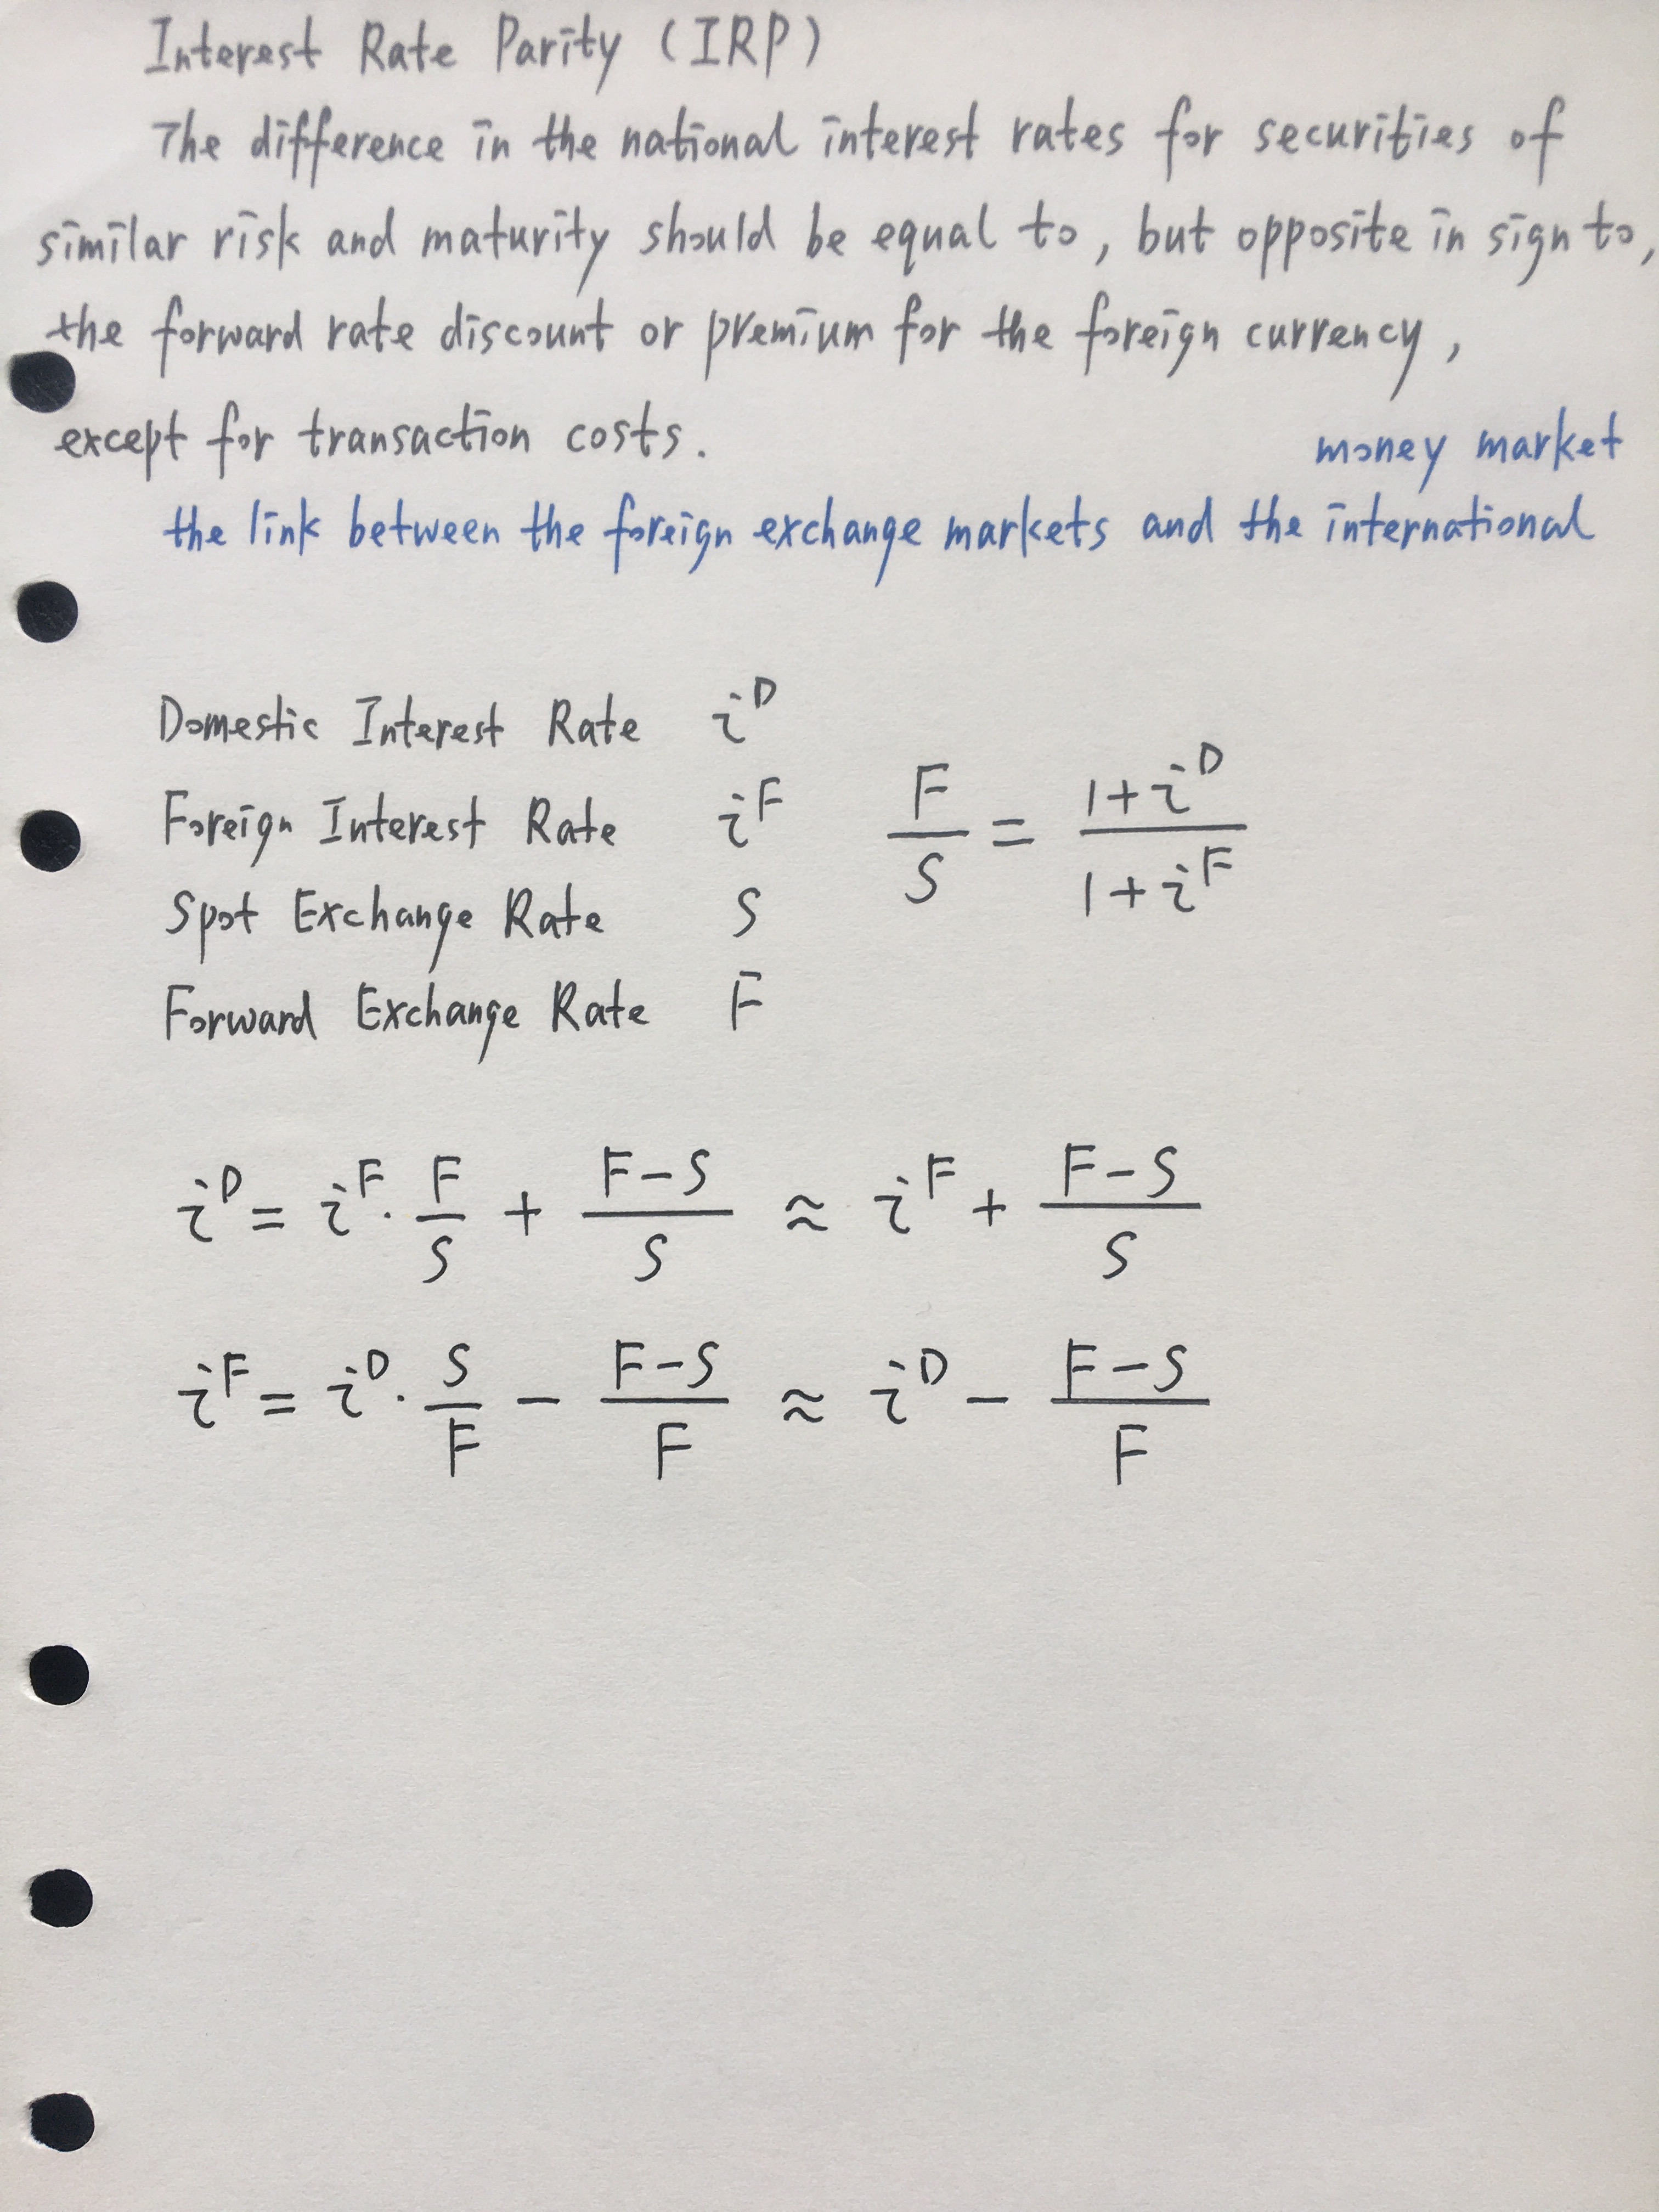 Interest Rate Parity (IRP)
The difference in the national interest rates for securities of
similar risk and maturity should be equal to, but opposite in sign to,
the forward rate discount or premium for the foreign currency,
except for transaction costs.
money market
the link between the foreign exchange markets and the international
Domestic Interest Rate i^D
Foreign Interest Rate i^F
F/S = (1+i^D)/(1+i^F)
Spot Exchange Rate S
Forward Exchange Rate F
i^D = i^F · F/S + (F-S)/S ≈ i^F + (F-S)/S
i^F = i^D · S/F - (F-S)/F ≈ i^D - (F-S)/F